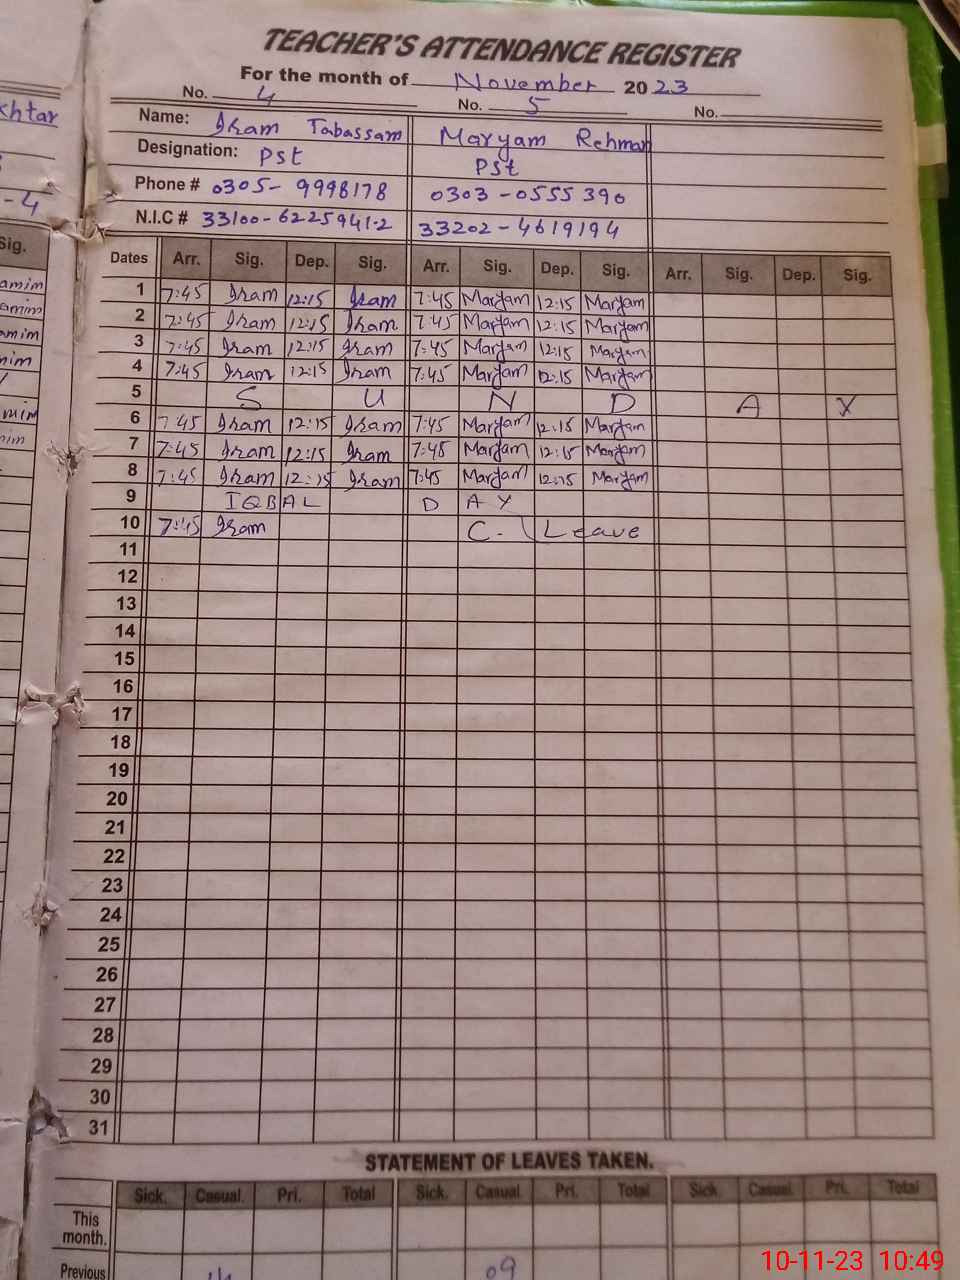 TEACHER'S ATTENDANCE REGISTER
For the month of November 2023
No. 4 No. 5 No.
Name: Iram Tabassam Maryam Rehman
Designation: Pst Pst
Phone # 0305-9998178 0303-0555390
N.I.C # 33100-6225941-2 33202-4619194
Dates Arr. Sig. Dep. Sig. Arr. Sig. Dep. Sig. Arr. Sig. Dep. Sig.
1 7:45 Iram 12:15 Iram 7:45 Maryam 12:15 Maryam
2 7:45 Iram 12:15 Iram 7:45 Maryam 12:15 Maryam
3 7:45 Iram 12:15 Iram 7:45 Maryam 12:15 Maryam
4 7:45 Iram 12:15 Iram 7:45 Maryam 12:15 Maryam
5 S U N D A Y
6 7:45 Iram 12:15 Iram 7:45 Maryam 12:15 Maryam
7 7:45 Iram 12:15 Iram 7:45 Maryam 12:15 Maryam
8 7:45 Iram 12:15 Iram 7:45 Maryam 12:15 Maryam
9 IQBAL DAY
10 7:45 Iram C. Leave
11
12
13
14
15
16
17
18
19
20
21
22
23
24
25
26
27
28
29
30
31
STATEMENT OF LEAVES TAKEN.
Sick. Casual. Pri. Total Sick. Casual. Pri. Total Sick. Casual. Pri. Total
This
month.
Previous 09
10-11-23 10:49